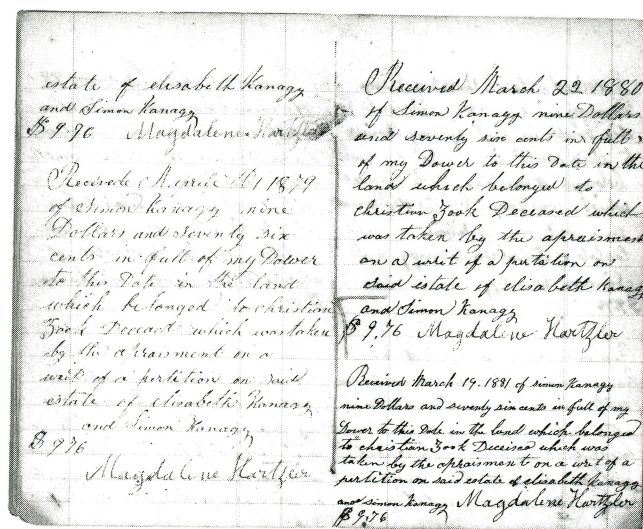 estate of elisabeth Kanagy
and Simon Kanagy
$ 9.96 Magdalene Hartzler
Recivede 1 1879
of Simon Kanagy nine
Dollars and seventy six
cents in full of my Dower
to this Date in the land
which belonged to christian
Zook Deceact which was taken
by the
writ of a pertition on said
estate of elisabeth Kanagy
and Simon Kanagy
$ 976
Magdalene Hartzler
Received March 22 1880
of Simon Kanagy nine Dollars
and seventy six cents in full
of my Dower to this Date in the
land which belonged to
christian Zook Deceased which
was taken by the apraisment
on a writ of a pertation on
said estate of elisabeth Kanagy
and Simon Kanagy
$ 9.76 Magdalene Hartzler
Received March 19. 1881 of simon Kanagy
nine Dollars and seventy six cents in full of my
Dower to this Date in the land which belonged
to christian Zook Deceised which was
taken by the apraisment on a writ of a
pertition on said estate of elisabeth Kanagy
and simon Kanagy Magdalene Hartzler
$ 9.76